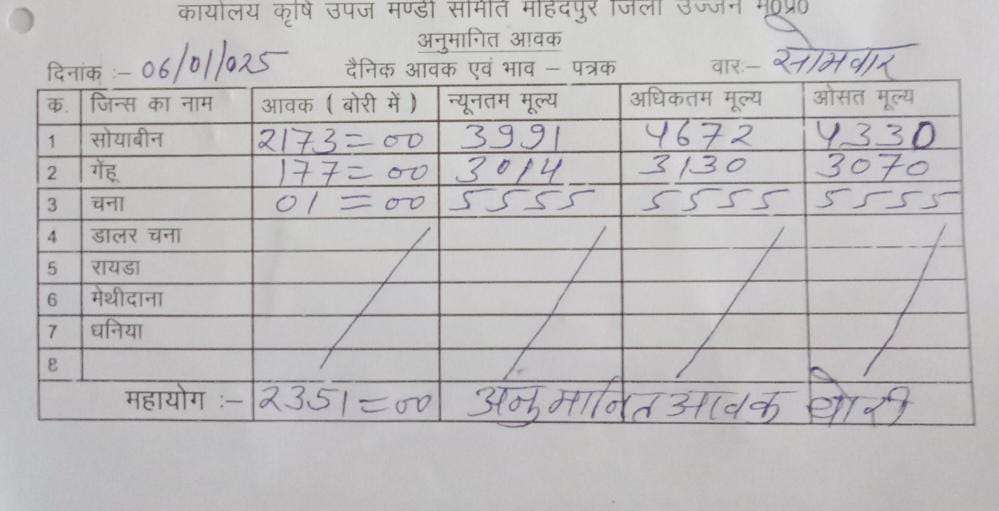 कार्यालय कृषि उपज मण्डी समिति महिदपुर जिला उज्जैन म०प्र०
अनुमानित आवक
दिनांक :- 06/01/025 दैनिक आवक एवं भाव – पत्रक वारः- सोमवार
क. जिन्स का नाम आवक ( बोरी में ) न्यूनतम मूल्य अधिकतम मूल्य ओसत मूल्य
1 सोयाबीन 2173=00 3991 4672 4330
2 गेंहू 177=00 3014 3130 3070
3 चना 01=00 5555 5555 5555
4 डालर चना
5 रायडा
6 मेथीदाना
7 धनिया
8
महायोग :- 2351=00 अनुमानित आवक बोरी